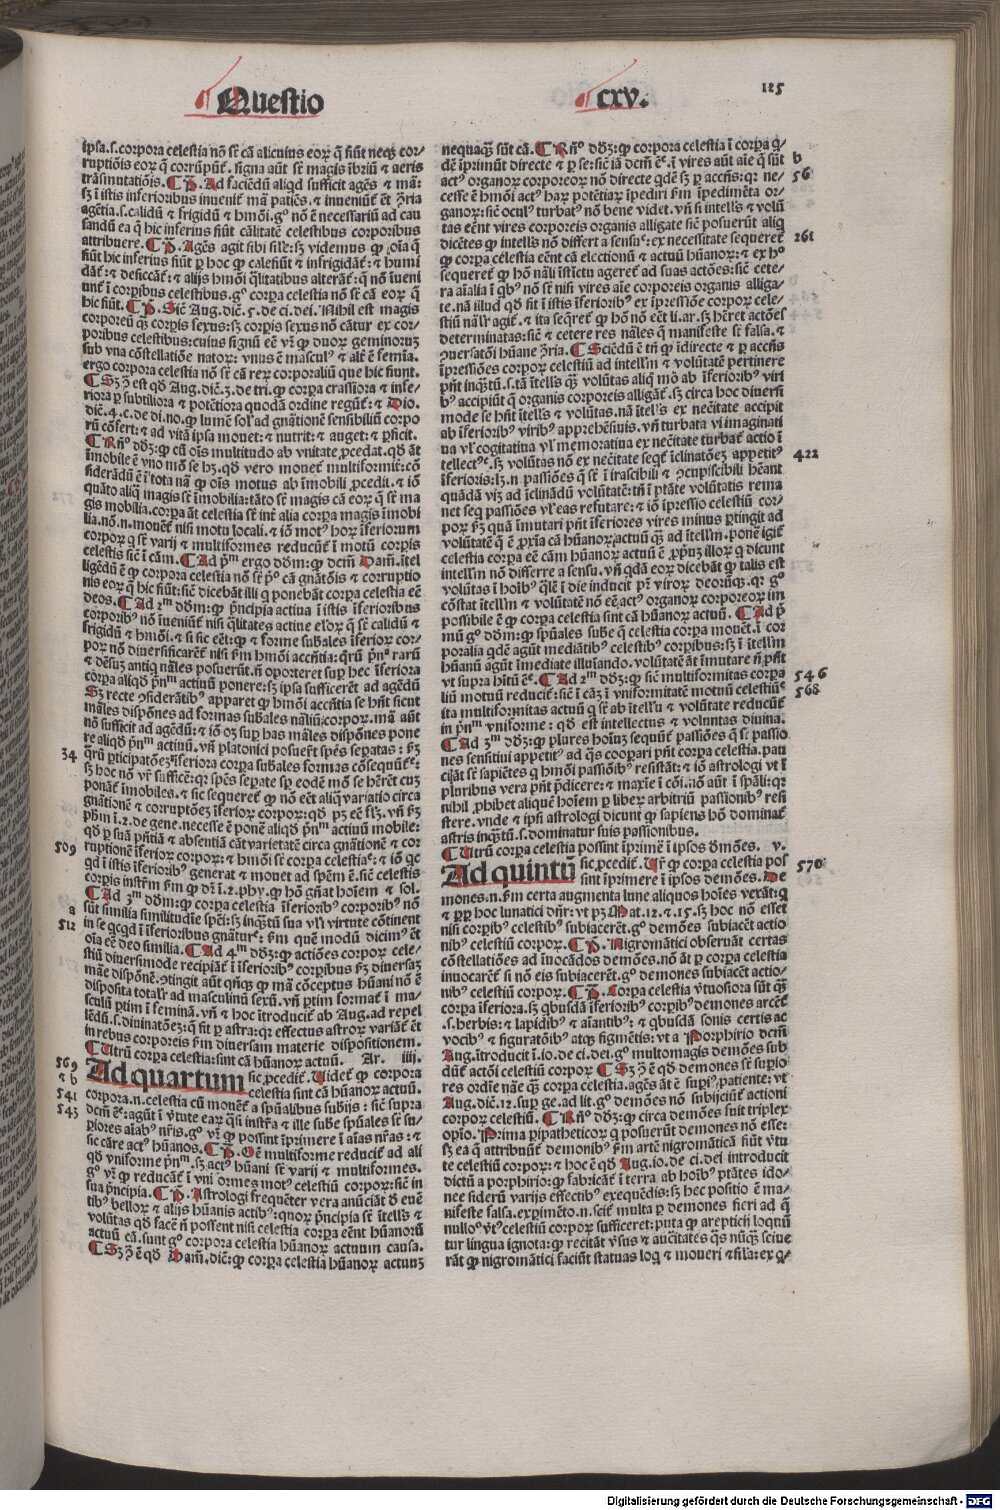 Questio
cxv.
125
ipsa.s.corpora celestia nō sūt cā alicuius eorū q̄ fiūt neq̄ cor-
ruptiōis eorū q̄ corrūpūt. signa aūt sūt magis ībriū & aeris
trāsmutatiōis. ¶ P. Ad faciēdū aliqd sufficit agēs & mā:
sꝫ ī istis inferioribus inuenit mā patiēs. & inueniūt & ꝯria
agētia.s.calidū & frigidū & hmōi. gº nō ē necessariū ad cau
sandū ea q̄ hic inferius fiūt cālitatē celestibus corporibus
attribuere. ¶ P. Agēs agit sibi sile: sꝫ videmus ꝙ oīa q̄
fiūt hic inferius fiūt p hoc ꝙ calefiūt & infrigidāt: & humi
dāt: & desiccāt: & alijs hmōi q̄litatibus alterāt: q̄ nō īueni
unt ī corpibus celestibus. gº corpa celestia nō sūt cā eorū q̄
hic fiūt. ¶ P. Sic Aug. dic. 5. de ci. dei. Nihil est magis
corporeū q̄ corpis sexus: sꝫ corpis sexus nō cātur ex cor-
poribus celestibus: cuius signū eē vr ꝙ duorū geminorum
sub vna cōstellatiōe natorū: vnus ē masculꝰ & alt ē femia.
ergo corpora celestia nō sūt cā rerū corporaliū que hic fiunt.
¶ Sꝫ ꝯ est qd Aug. dic. 3. de tri. ꝙ corpa crassiora & infe-
riora p subtiliora & potētiora quodā ordine regūt: & Dio.
dic. 4. c. de di. no. ꝙ lumē solꝭ ad gnātionē sensibiliū corpo
rū cōfert: & ad vitā ipsa mouet: & nutrit: & auget: & pficit.
¶ Rñº dd: ꝙ cū oīs multitudo ab vnitate pcedat. qd āt
īmobile ē vno mō se hꝫ. qd vero mouet multiformit: cō
siderādū ē ī tota nā ꝙ oīs motus ab īmobili pcedit. & iō
quāto aliq̄ magis sūt īmobilia: tāto sūt magis cā eorū q̄ sūt ma
gis mobilia. corpa āt celestia sūt int alia corpa magis īmobi
lia. nō.n. mouēt nisi motu locali. & iō motꝰ horū īferiorum
corporū q̄ sūt varij & multiformes reducūt ī motū corpis
celestis sic ī cām. ¶ Ad pm ergo ddm: ꝙ dcm Dam. ītel
ligēdū ē ꝙ corpora celestia nō sūt pº cā gnātōis & corruptio
nis eorū q̄ hic fiūt: sic dicebāt illi q ponebāt corpa celestia eē
deos. ¶ Ad 2m ddm: ꝙ pncipia actiua ī istis īferioribus
corporibꝰ nō īueniūt nisi q̄litates actiue elorū q̄ sūt calidū &
frigidū & hmōi. & si sic eēt: ꝙ & forme subales īferiorū cor-
porū nō diuersificarēt nisi fm hmōi accntia: qrū pnª rarū
& dēsuꝫ antiq nales posuerūt. ñ oporteret sup hec īferiora
corpa aliqd pnm actiuū ponere: sꝫ ipsa sufficerēt ad agēdū
Sꝫ recte ꝯsiderātibꝰ apparet ꝙ hmōi accntia se hnt sicut
māles dispōnes ad formas subales naliū corporū. mā aūt
nō sufficit ad agēdū: & iō oꝫ sup has māles dispōnes pone
re aliqd pnm actiuū. vn platonici posuerūt spēs sepatas: fm
qrū pticipatōeꝫ īferiora corpa subales formas cōsequūt:
sꝫ hoc nō vr sufficē: qꝛ spēs sepate sp eodē mō se hērēt cuꝫ
ponāt īmobiles. & sic sequeret ꝙ nō eēt aliq̄ variatio circa
gnātionē & corruptōeꝫ īferiorū corporū: qd pꝫ eē flꝫ. vn fm
phm ī. 2. de gene. necesse ē ponē aliqd pnm actiuū mobile:
qd p suā pntiā & absentiā cāt varietatē circa gnātionē & cor
ruptionē īferiorū corporū: & hmōi sūt corpa celestia: & iō qc
qd ī istis īferioribꝰ generat & mouet ad spēm ē. sic celestis
corpis instrm fm ꝙ dr ī. 2. phy. ꝙ hō gnat hoiem & sol.
¶ Ad 3m ddm: ꝙ corpa celestia īferioribꝰ corporibꝰ nō
sūt similia similitudie spēi: sꝫ inqtū sua vli virtute cōtinent
in se qcqd ī īferioribus gnāt: fm quē modū dicim &
oīa eē deo similia. ¶ Ad 4m dd: ꝙ actiōes corporū cele-
stiū diuersimode recipiāt ī īferioribꝰ corpibus fm diuersaꝫ
māe dispōnē. ꝯtingit aūt qnqꝫ ꝙ mā cōceptus hūani nō ē
disposita totalr ad masculinū sexū. vn ptim format ī ma-
sculū ptim ī feminā. vn & hoc ītroducit ab Aug. ad repel
lēdū.s. diuinatōeꝫ: q̄ fit p astra: qꝛ effectus astrorū variāt &
in rebus corporeis fm diuersam materie dispositionem.
¶ Utrū corpa celestia: sint cā hūanorū actuū. Ar. iiij.
Ad quartum sic pcedit. Videt ꝙ corpora
celestia sint cā hūanorū actuū.
corpora.n. celestia cū mouēt a spualibus subijs: sic supra
dcm : agūt ī vtute earū qsi instra & ille sube spuales sūt su-
piores aīabꝰ nris. gº vr ꝙ possint īprimere ī aīas nras: &
sic cāre actꝰ hūanos. ¶ P. Oē multiforme reducit ad ali
qd vniforme pnm. sꝫ actꝰ hūani sūt varij & multiformes.
gº vr ꝙ reducāt ī vniformes motꝰ celestiū corporū: sic in
sua pncipia. ¶ P. Astrologi frequēter vera anūciāt de euē
tibꝰ bellorū & alijs hūanis actibꝰ: quorū pncipia sūt ītells &
volūtas qd facē ñ possent nisi celestia corpa eēnt hūanorū
actuū cā. sunt gº corpora celestia hūanorū actuum causa.
¶ Sꝫ ꝯ ē qd Dam. dic: ꝙ corpa celestia hūanorū actuuꝫ
nequaqꝫ sūt cā. ¶ Rñº dd: ꝙ corpora celestia ī corpa q
dē īprimūt directe & p se: sic iā dcm ē. ī vires aūt aīe q̄ sūt
actꝰ organorū corporeorū nō directe qdē sꝫ p accns: qꝛ ne-
cesse ē hmōi actꝰ harū potētiarū īpediri fm īpedimēta or-
ganorū: sic oculꝰ turbatꝰ nō bene videt. vn si intells & volū
tas eēnt vires corporeis organis alligate sic posuerūt aliq
dicētes ꝙ intells nō differt a sensu: ex necessitate sequeret
ꝙ corpa celestia eēnt cā electionū & actuū hūanorū: & ex hº
sequeret ꝙ hō nali īstictu ageret ad suas actōes: sic cete-
ra aīalia ī qbꝰ nō sūt nisi vires aīe corporeis organis alliga-
te. nā illud qd fit ī istis īferioribꝰ ex īpressiōe corporū cele-
stiū nalr agit. & ita seqret ꝙ hō nō eēt li. ar. sꝫ hēret actōes
determinatas: sic & cetere res nales q manifeste ē falsa. &
ꝯuersatōi hūane ꝯria. ¶ Sciēdū ē tn ꝙ īdirecte & p accns
īpressiōes corporū celestiū ad intellm & volūtatē pertinere
pnt inqtū.s. tā ītells qꝫ volūtas aliq mō ab īferioribꝰ viri
bꝰ accipiūt q̄ organis corporeis alligāt. sꝫ circa hoc diuersi
mode se hnt ītells & volūtas. nā ītells ex necitate accipit
ab īferioribꝰ viribꝰ apprehēsiuis. vn turbata vi imaginati
ua vl cogitatiua vl memoratiua ex necitate turbat actio ī
tellect. sꝫ volūtas nō ex necitate seqt īclinatōeꝫ appetitꝰ
īferioris: lꝫ.n. passiōes q̄ sūt ī irascibili & ꝯcupiscibili hēant
quādā vim ad īclinādū volūtatē: tn ī ptāte volūtatis rema
net seq passiōes vl eas refutare: & iō īpressio celestiū cor-
porū fm quā īmutari pnt īferiores vires minus ptingit ad
volūtatē q̄ ē pxia cā hūanorū actuū q̄ ad ītellm. ponē igit
celestia corpa eē cām hūanorū actuū ē ppriuꝫ illorū q dicunt
intellm nō differre a sensu. vn qdā eorū dicebāt ꝙ talis est
volūtas ī hoibꝰ qlē ī die inducit pr virorū deorūqꝫ. qꝛ gº
cōstat ītellm & volūtatē nō eē actꝰ organorū corporeorū im
possibile ē ꝙ corpa celestia sint cā hūanorū actuū. ¶ Ad p
mū gº ddm: ꝙ spuales sube q̄ celestia corpa mouēt. ī cor
poralia qdē agūt mediātibꝰ celestibꝰ corpibus: sꝫ ī ītellm
hūanū agūt īmediate illuiando. volūtatē āt īmutare ñ pnt
vt supra hitū ē. ¶ Ad 2m dd: ꝙ sic multiformitas corpa
liū motuū reducit: sic ī cāꝫ ī vniformitatē motuū celestiū
ita multiformitas actuū q̄ sūt ab ītellu & volūtate reducūt
in pnm vniforme: qd est intellectus & voluntas diuina.
¶ Ad 3m dd: ꝙ plures hoiuꝫ sequūt passiōes q̄ sūt passio
nes sensitiui appetitꝰ ad qs coopari pnt corpa celestia. pau
ci āt sūt sapiētes q hmōi passiōibꝰ resistāt: & iō astrologi vt ī
pluribus vera pnt pdicere: & maxie ī cōi. nō aūt ī spāli: qꝛ
nihil phibet aliquē hoiem p liberū arbitriū passionibꝰ resi
stere. vnde & ipsi astrologi dicunt ꝙ sapiens hō dominat
astris inqtū.s. dominatur suis passionibus.
¶ Utrū corpa celestia possint īprimē ī ipsos demōes. v.
Ad quintū sic pcedit. Vr ꝙ corpa celestia pos
sint īprimere ī ipsos demōes. De
mones.n. fm certa augmenta lune aliquos hoies vexāt: q
& pp hoc lunatici dnr: vt pꝫ Mat. 12. & 15. sꝫ hoc nō esset
nisi corpibꝰ celestibꝰ subiacerēt. gº demōes subiacēt actio
nibꝰ celestiū corporū. ¶ P. Nigromātici obseruāt certas
cōstellatiōes ad īuocādos demōes. nō āt p corpa celestia
inuocarēt si nō eis subiacerēt. gº demones subiacēt actio-
nibꝰ celestiū corporū. ¶ P. Corpa celestia vtuosiora sūt qꝫ
corpa īferiora. sꝫ qbusdā īferioribꝰ corpibꝰ demones arcēt
.s. herbis: & lapidibꝰ & aīantibꝰ: & qbusdā sonis certis ac
vocibꝰ & figuratōibꝰ atqꝫ figmētis: vt a Porphirio dcm
Aug. ītroducit ī. io. de ci. dei. gº multomagis demōes sub
dūt actōi celestiū corporū ¶ Sꝫ ꝯ ē qd demones sūt supio
res ordie nāe q̄ corpa celestia. agēs āt ē supiº patiente: vt
Aug. dic. 12. sup ge. ad lit. gº demōes nō subijciūt actioni
corporū celestiū. ¶ Rñº dd: ꝙ circa demōes fuit triplex
opio. Prima pipatheticorū q posuerūt demones nō esse:
sꝫ ea q̄ attribuūt demonibꝰ fm artē nigromāticā fiūt vtu
te celestiū corporū: & hoc ē qd Aug. io. de ci. dei introducit
dictū a porphirio: ꝙ fabricāt ī terra ab hoibꝰ ptātes ido-
nee siderū varijs effectibꝰ exequēdis: sꝫ hec positio ē ma-
nifeste falsa. expimēto.n. scit multa p demones fieri ad q̄
nulloº vtꝰ celestiū corporū sufficeret: puta ꝙ arepticij loquū
tur lingua ignota: ꝙ recitāt vsus & auctitates qs nūqꝫ sciue
rāt ꝙ nigromātici faciūt statuas loq & moueri & sila: ex q-
34
509
a
512
569
& b
541
543
b
56
261
422
546
568
570
Digitalisierung gefördert durch die Deutsche Forschungsgemeinschaft - DFG